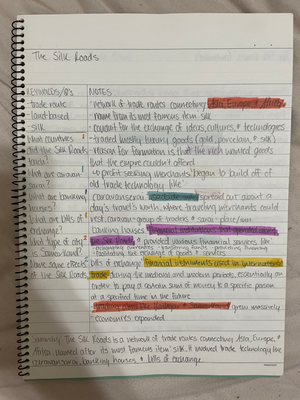 The Silk Roads
KEYWORDS/Q's NOTES
trade route network of trade routes connecting Asia, Europe, & Africa
land-based name from its most famous item: silk
silk conduit for the exchange of ideas, cultures, & technologies
what countries traded mostly luxury goods (gold, porcelain, & silk)
did the Silk Roads reason for formation is that the rich wanted goods
reach? that the empire couldn't offered
what are caravan- to profit seeking merchants began to build off of
sarai? old trade technology like:
what are banking caravanserai: spread out about a
houses? day's travel's worth, where traveling merchants could
what are bills of rest. caravan = group of traders & sarai = place/inn
exchange? banking houses:
what type of city the Silk Roads & provided various financial services like
is Samarkand? facilitating the exchange of goods & services
what some effects bills of exchange: financial instruments used in international
of the Silk Roads trade during the medieval and modern periods, essentially an
order to pay a certain sum of money to a specific person
at a specified time in the future
grew immensely
economies expanded
Summary: The Silk Roads is a network of trade routes connecting Asia, Europe, &
Africa, named after its most famous item: silk. It involved trade technology like
caravanserai, banking houses, & bills of exchange.